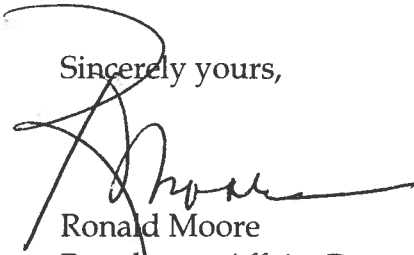 Sincerely yours,
R Moore
Ronald Moore